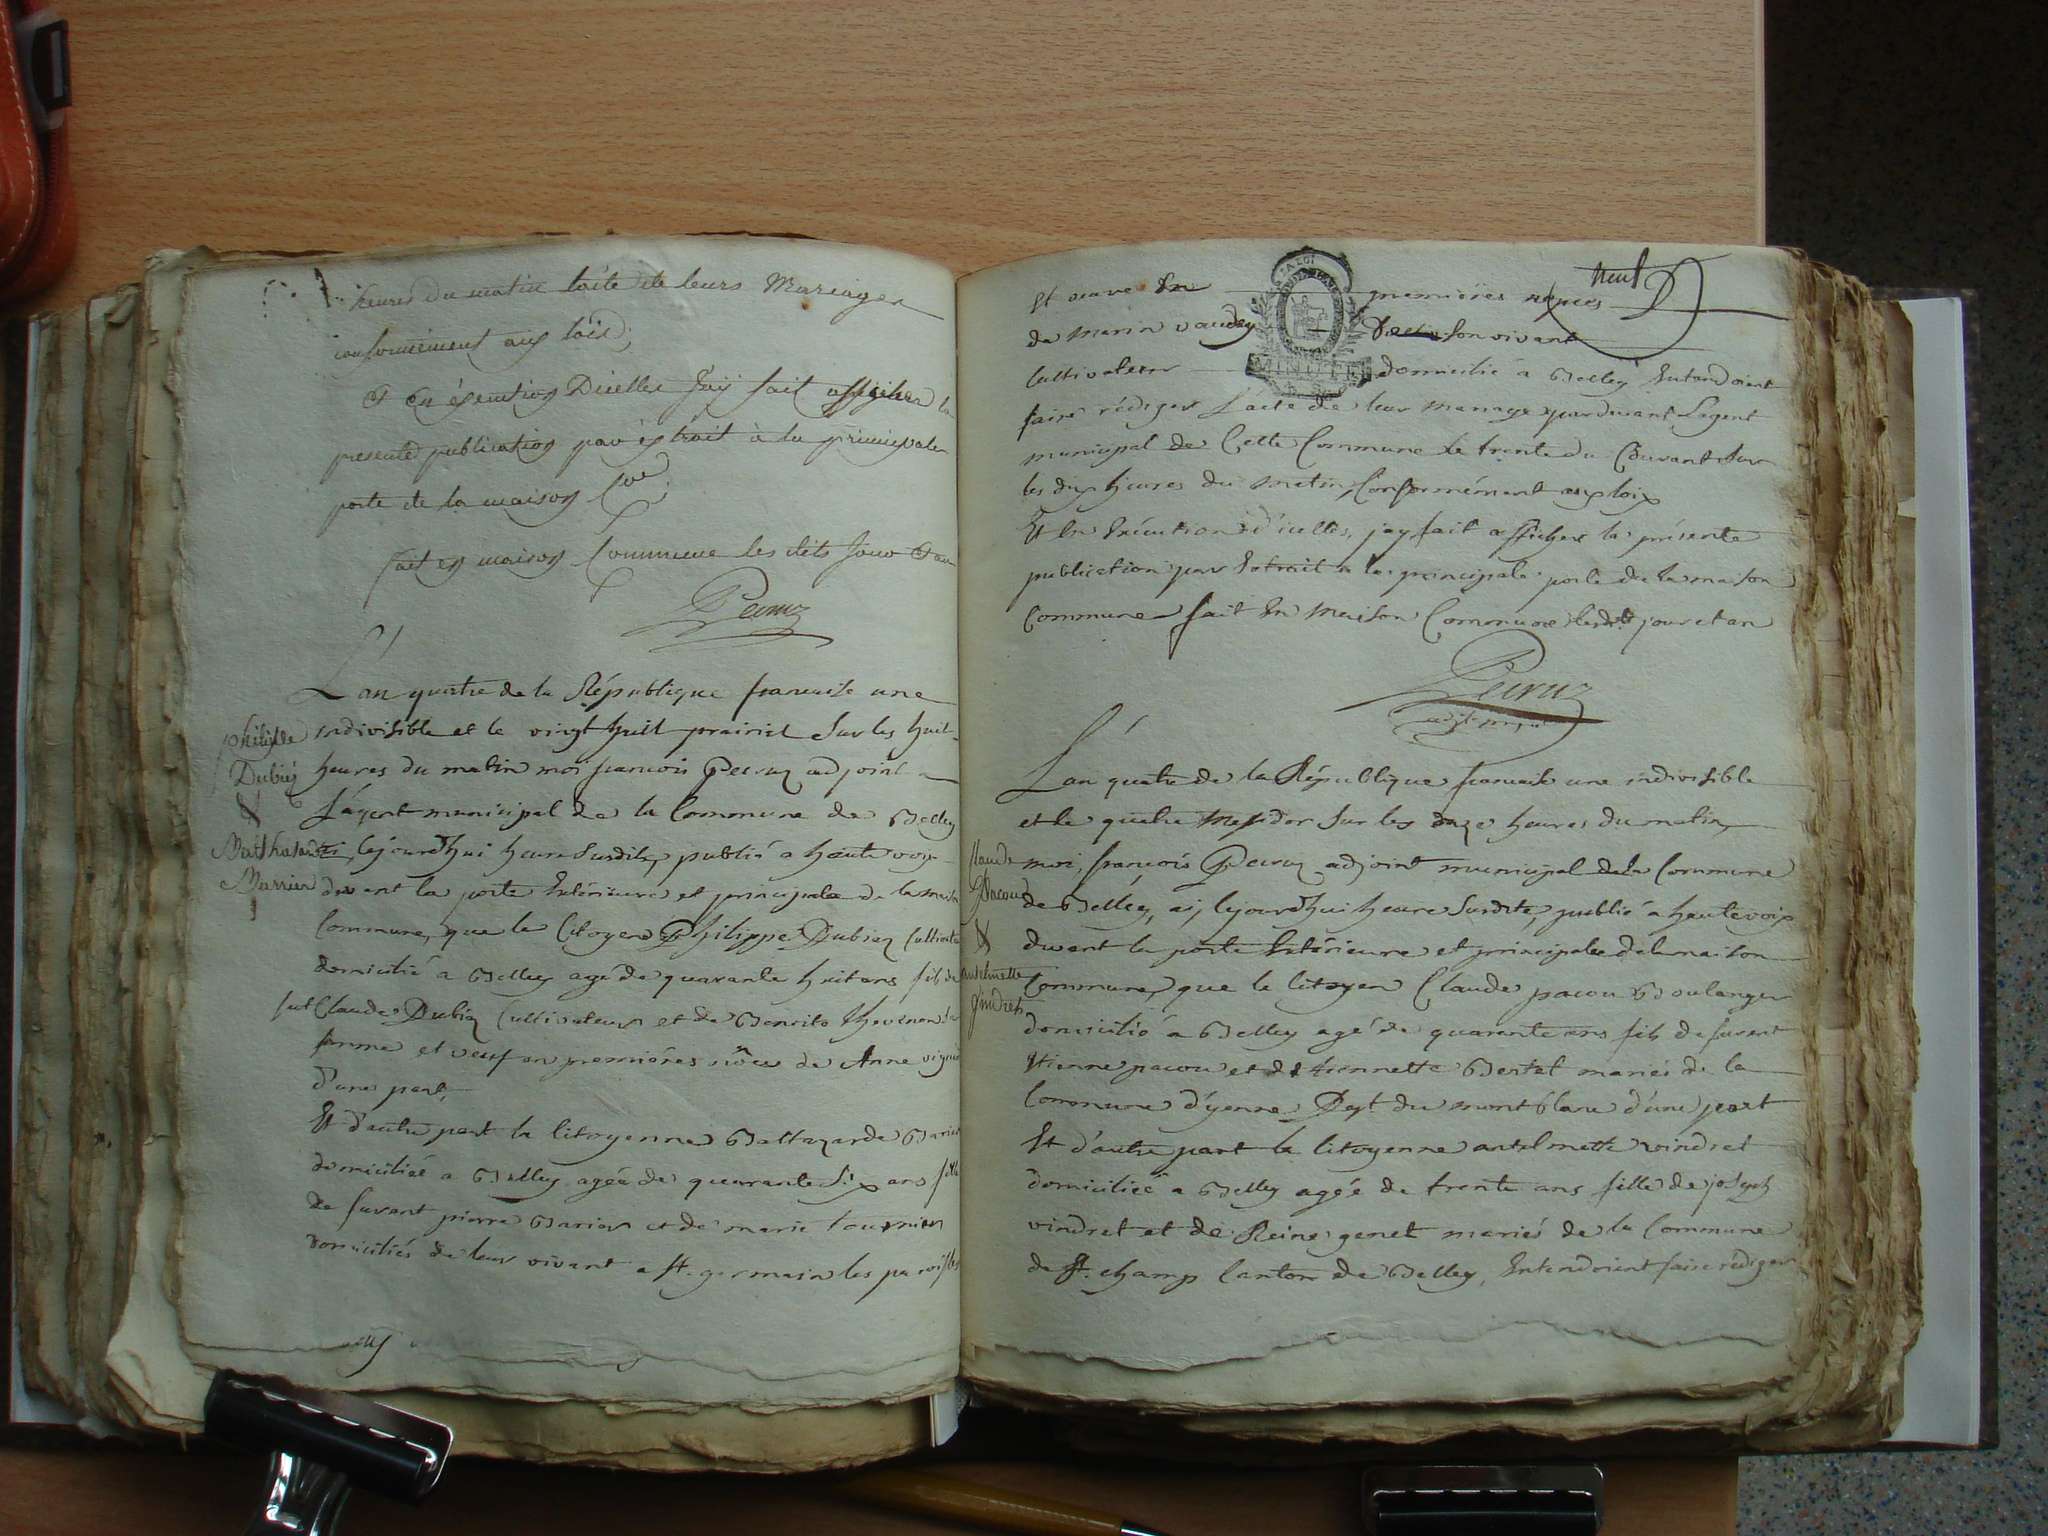 heures du matin l'acte de leurs Mariages
conformément aux loix;
Et en éxécution Dicelles J'aÿ fait afficher la
presente publication par extrait à la principale
porte de la maison Cne.
fait en maison Commune les dits Jour & an
Peruz
L'an quatre de la République francaise une
indivisible et le vingt huit prairial Sur les huit
heures du matin moi francois Peruz adjoint
L'agent municipal de la Commune de Belley
ai, cejourd'hui heure Susdite, publié a haute voix
devant la porte Extérieure et principale de la maison
Commune, que le Citoyen Philippe Dubiez Cultivateur
domicilié a Belley agé de quarante huit ans fils de
fut Claude Dubiez Cultivateur et de Benoite thevenon sa
femme et veuf en premiéres nôces de Anne
d'une part,
Et d'autre part la Citoyenne Baltazarde Barier
domiciliée a Belley agée de quarante Six ans fille
de furent pierre Barier et de marie tournier
domiciliés de leur vivant a St. germain les paroisses
philippe
Dubiez
&
Balthazarde
Barrier
neuf
Et veuve En premières nopces
de marin vauday De son vivant
Cultivateur domicilié à Belley Entendoient
faire rédiger L'acte de leur mariage pardevant L'agent
municipal de Cette Commune le trente du Courant Sur
les dix heures du matin, Conformément aux loix
Et En Exécution d'icelles, j'ay fait afficher la présente
publication par Extrait a la principale porte de la maison
Commune fait En Maison Commune lesdts jour et an
LA LOI
MINUTE
Peruz
adjt. mpal
L'an quatre de la République francaise une indivisible
et le quatre Messidor Sur les onze heures du matin,
moi, françois Peruz adjoint municipal de la Commune
de Belley, ai, cejourd'hui heure Susdite, publié a haute voix
devant la porte Extérieure et principale de la maison
Commune, que le Citoyen Claude pacou Boulanger
domicilié a Belley agé de quarante ans fils de furent
Etienne pacou et de Etiennette Bertet mariés de la
Commune d'yenne Dept du mont blanc d'une part
Et d'autre part la Citoyenne antelmette vindret
domiciliée a Belley agée de trente ans fille de joseph
vindret et de Reine genet mariés de la Commune
de St. champ Canton de Belley, Entendoient faire rédiger
Claude
Pacou
&
antelmette
Vindret